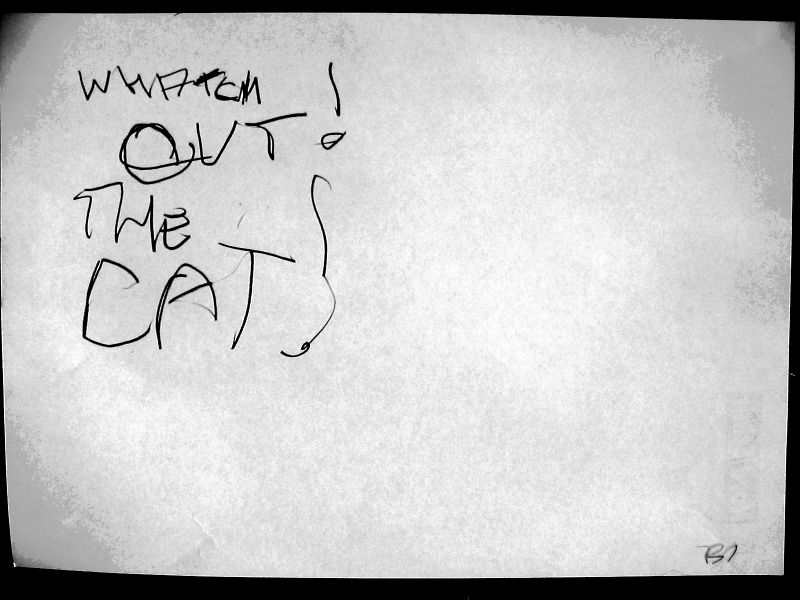 WHATCH !
OUT !
THE
CAT !
B1